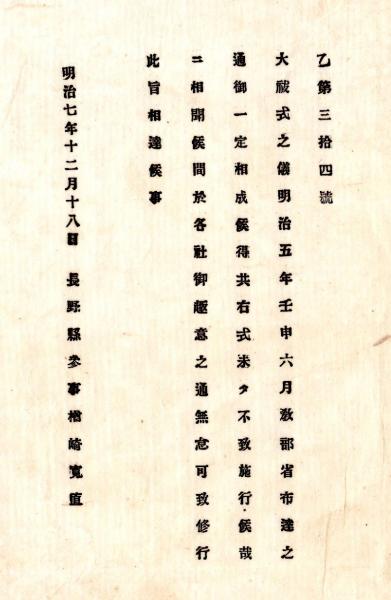 乙第三拾四號
大祓式之儀明治五年壬申六月敎部省布達之
通御一定相成候得共右式未タ不致施行候哉
ニ相聞候間於各社御趣意之通無怠可致修行
此旨相達候事
明治七年十二月十八日 長野縣參事楢崎寬直